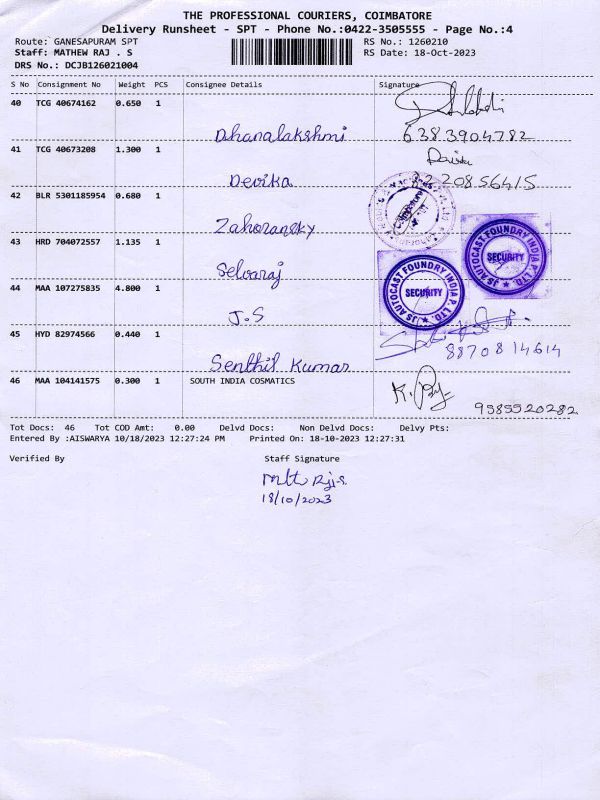 THE PROFESSIONAL COURIERS, COIMBATORE
Delivery Runsheet - SPT - Phone No.:0422-3505555 - Page No.:4
Route: GANESAPURAM SPT RS No.: 1260210
Staff: MATHEW RAJ . S RS Date: 18-Oct-2023
DRS No.: DCJB126021004
S No Consignment No Weight PCS Consignee Details Signature
40 TCG 40674162 0.650 1
Dhanalakshmi 6383904782
41 TCG 40673208 1.300 1
Devika
42 BLR 5301185954 0.680 1
Zahoransky
43 HRD 704072557 1.135 1
JS AUTOCAST FOUNDRY INDIA P. LTD. SECURITY
Selvaraj
44 MAA 107275835 4.800 1
JS AUTOCAST FOUNDRY INDIA P. LTD. SECURITY
J.S
45 HYD 82974566 0.440 1
8870814614
Senthil Kumar
46 MAA 104141575 0.300 1 SOUTH INDIA COSMATICS
9585520282
Tot Docs: 46 Tot COD Amt: 0.00 Delvd Docs: Non Delvd Docs: Delvy Pts:
Entered By :AISWARYA 10/18/2023 12:27:24 PM Printed On: 18-10-2023 12:27:31
Verified By Staff Signature
18/10/2023